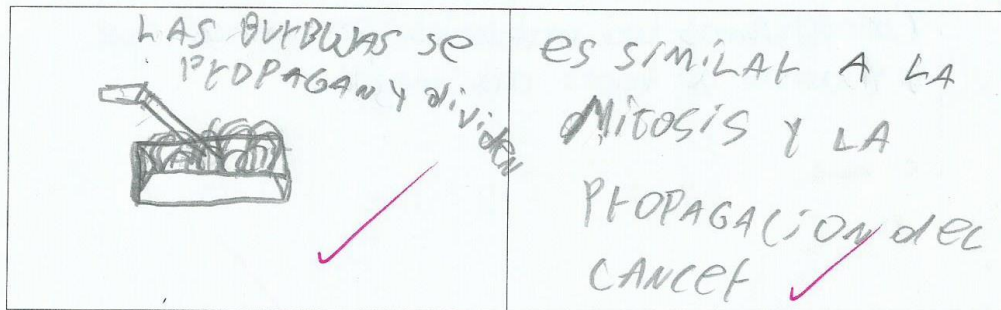 LAS BURBUJAS se
PROPAGAN Y dividen
es similar A LA
Mitosis Y LA
PROPAGACION del
CANCER